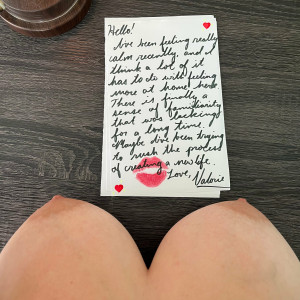 Hello!
I've been feeling really
calm recently, and I
think a lot of it
has to do with feeling
more at home here.
There is finally a
sense of familiarity
that was lacking
for a long time.
Maybe I've been trying
to rush the process
of creating a new life.
Love, Valorie